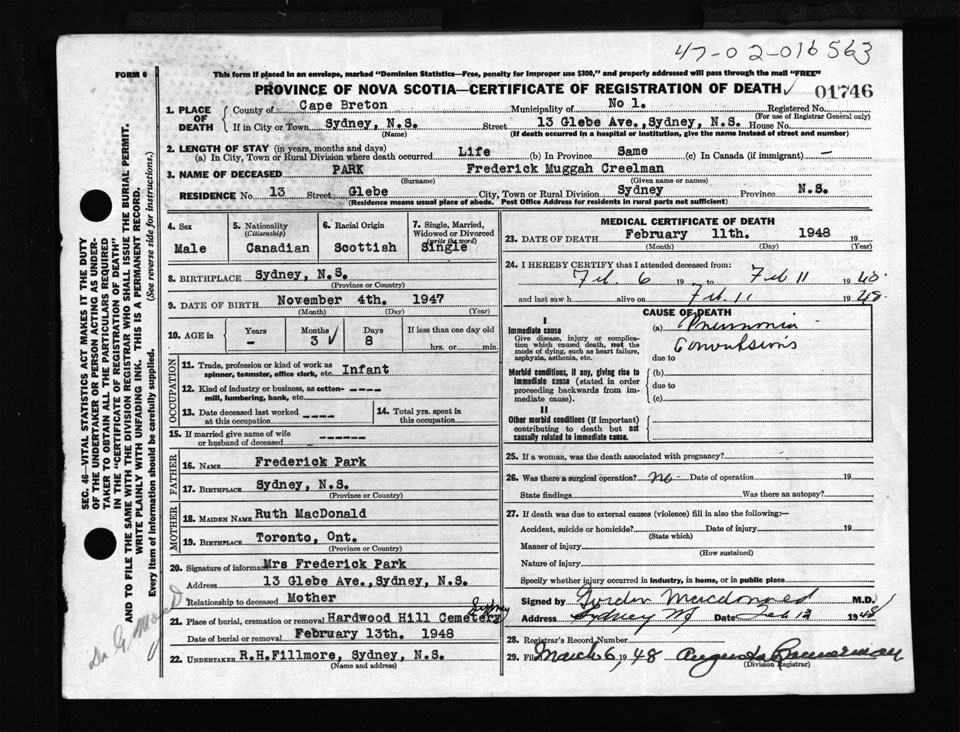 47-02-016563
FORM 6
This form if placed in an envelope, marked "Dominion Statistics—Free, penalty for improper use $300," and properly addressed will pass through the mail "FREE"
PROVINCE OF NOVA SCOTIA—CERTIFICATE OF REGISTRATION OF DEATH
01746
1. PLACE OF DEATH
County of Cape Breton Municipality of No 1. Registered No.
(For use of Registrar General only)
If in City or Town Sydney, N.S. Street 13 Glebe Ave.,Sydney, N.S. House No.
(Name) (If death occurred in a hospital or institution, give the name instead of street and number)
2. LENGTH OF STAY (in years, months and days)
(a) In City, Town or Rural Division where death occurred Life (b) In Province Same (c) In Canada (if immigrant) —
3. NAME OF DECEASED PARK Frederick Muggah Creelman
(Surname) (Given name or names)
RESIDENCE No. 13 Street Glebe City, Town or Rural Division Sydney Province N.S.
(Residence means usual place of abode. Post Office Address for residents in rural parts not sufficient)
4. Sex
Male
5. Nationality
(Citizenship)
Canadian
6. Racial Origin
Scottish
7. Single, Married, Widowed or Divorced
(write the word)
Single
8. BIRTHPLACE Sydney, N.S.
(Province or Country)
9. DATE OF BIRTH November 4th. 1947
(Month) (Day) (Year)
10. AGE in
Years Months Days If less than one day old
- 3 ✓ 8 hrs. or min.
OCCUPATION
11. Trade, profession or kind of work as spinner, teamster, office clerk, etc. Infant
12. Kind of industry or business, as cotton-mill, lumbering, bank, etc. ----
13. Date deceased last worked at this occupation ----
14. Total yrs. spent in this occupation
15. If married give name of wife or husband of deceased ------
FATHER
16. NAME Frederick Park
17. BIRTHPLACE Sydney, N.S.
(Province or Country)
MOTHER
18. MAIDEN NAME Ruth MacDonald
19. BIRTHPLACE Toronto, Ont.
(Province or Country)
20. Signature of informant Mrs Frederick Park
Address 13 Glebe Ave.,Sydney, N.S.
Relationship to deceased Mother
21. Place of burial, cremation or removal Hardwood Hill Cemetery Sydney
Date of burial or removal February 13th. 1948
22. UNDERTAKER R.H.Fillmore, Sydney, N.S.
(Name and address)
MEDICAL CERTIFICATE OF DEATH
23. DATE OF DEATH February 11th. 1948 19
(Month) (Day) (Year)
24. I HEREBY CERTIFY that I attended deceased from:
Feb. 6 19 to Feb 11 1948
and last saw h alive on Feb. 11 1948
CAUSE OF DEATH
I
Immediate cause
Give disease, injury or complication which caused death, not the mode of dying, such as heart failure, asphyxia, asthenia, etc.
(a) Pneumonia
Convulsions
due to
Morbid conditions, if any, giving rise to immediate cause (stated in order proceeding backwards from immediate cause).
(b)
due to
(c)
II
Other morbid conditions (if important) contributing to death but not causally related to immediate cause.
25. If a woman, was the death associated with pregnancy?
26. Was there a surgical operation? no Date of operation 19
State findings Was there an autopsy?
27. If death was due to external causes (violence) fill in also the following:—
Accident, suicide or homicide? Date of injury 19
(State which)
Manner of injury
(How sustained)
Nature of injury
Specify whether injury occurred in industry, in home, or in public place
Signed by Gordon Macdonald M.D.
Address Sydney NS Date Feb 13 1948
28. Registrar's Record Number
29. Filed March 6 1948 Angus Bannerman
(Division Registrar)
SEC. 46—VITAL STATISTICS ACT MAKES IT THE DUTY
OF THE UNDERTAKER OR PERSON ACTING AS UNDER-
TAKER TO OBTAIN ALL THE PARTICULARS REQUIRED
IN THE "CERTIFICATE OF REGISTRATION OF DEATH"
AND TO FILE THE SAME WITH THE DIVISION REGISTRAR WHO SHALL ISSUE THE BURIAL PERMIT.
WRITE PLAINLY WITH UNFADING INK. THIS IS A PERMANENT RECORD.
Every item of information should be carefully supplied. (See reverse side for instructions.)
Dr. G.